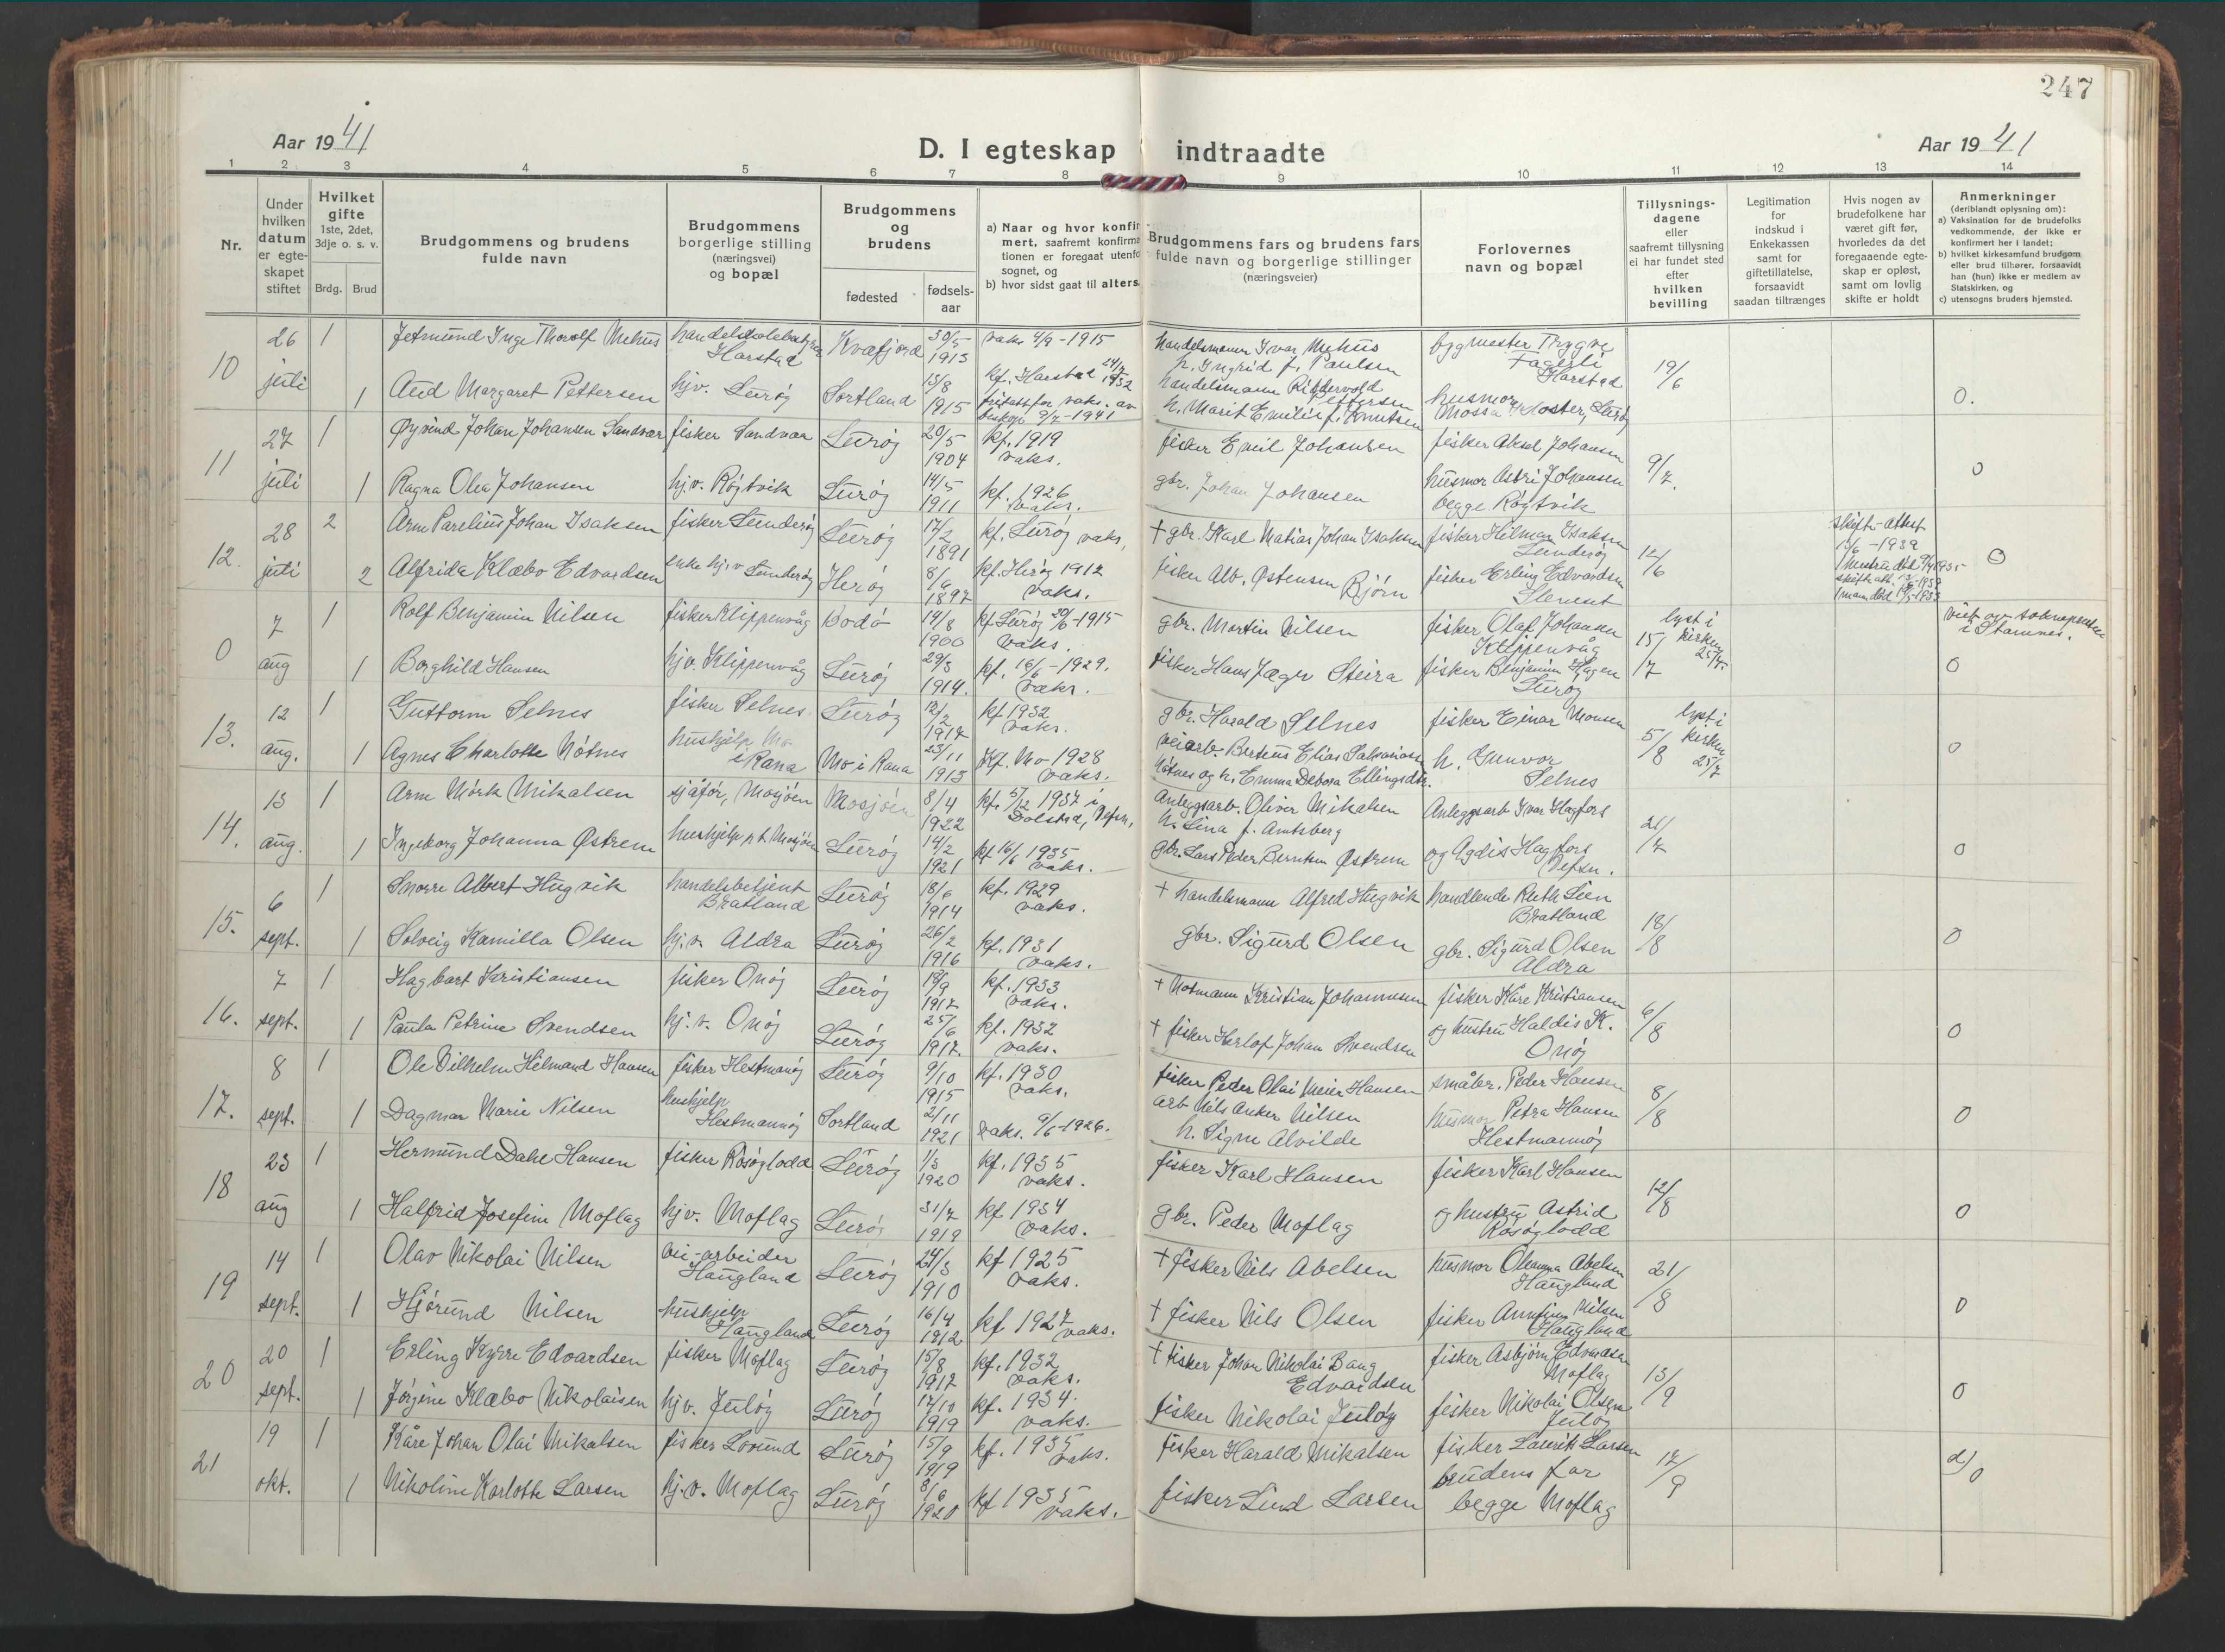 247
Aar 1941
D. I egteskap indtraadte
Aar 1941
1 2 3 4 5 6 7 8 9 10 11 12 13 14
Nr.
Under hvilken datum er egte-skapet stiftet
Hvilket gifte 1ste, 2det, 3dje o. s. v.
Brdg. Brud
Brudgommens og brudens fulde navn
Brudgommens borgerlige stilling (næringsvei) og bopæl
Brudgommens og brudens
fødested
fødsels-aar
a) Naar og hvor konfir-
mert, saafremt konfirma
tionen er foregaat utenfo
sognet, og
b) hvor sidst gaat til alters.
Brudgommens fars og brudens fars
fulde navn og borgerlige stillinger
(næringsveier)
Forlovernes
navn og bopæl
Tillysnings-
dagene
eller
saafremt tillysning
ei har fundet sted
efter
hvilken
bevilling
Legitimation
for
indskud i
Enkekassen
samt for
giftetillatelse,
forsaavidt
saadan tiltrænges
Hvis nogen av
brudefolkene har
været gift før,
hvorledes da det
foregaaende egte-
skap er opløst,
samt om lovlig
skifte er holdt
Anmerkninger
(deriblandt oplysning om):
a) Vaksination for de brudefolks
vedkommende, der ikke er
konfirmert her i landet;
b) hvilket kirkesamfund brudgom
eller brud tilhører, forsaavidt
han (hun) ikke er medlem av
Statskirken, og
c) utensogns bruders hjemsted.
10 26 juli 1 Jetmund Inge Thorolf Mehus Harstad Kvæfjord 30/5 1913 vaks 4/9-1915 handelsmann Ivar Mehus h. Ingrid f. Paulsen bygmester Trygve Harstad 19/6
1 Aud Margaret Pettersen hjv. Lurøy Sortland 13/8 1915 kf. Harstad 1932 fritatt for vaks. av handelsmann Pettersen h. Marit Emilie f. Knutsen husmor Lurøy 0.
11 27 juli 1 Øyvind Johan Johansen Sandvær fisker Sandvær Lurøy 20/5 1904 kf. 1919 vaks. fisker Emil Johansen fisker Aksel Johansen 9/7.
1 Ragna Olea Johansen hj.v. Røytvik Lurøy 14/5 1911 kf. 1926 vaks. gbr. Johan Johansen husmor Astri Johansen begge Røytvik 0
12. 28 juli 2 Arne Parelius Johan Isaksen fisker Sunderøy Lurøy 17/2 1891 kf. Lurøy vaks, † gbr. Karl Matias Johan Isaksen fisker Hilmar Isaksen Sunderøy 12/6 skifte-attest
2 Alfrida Klæbo Edvardsen enke hj.v Sunderøy Herøy 8/6 1897 kf. Herøy 1912 vaks. fisker Alb. Østensen Bjørn fisker Erling Edvardsen 0
0 7 aug 1 Rolf Benjamin Nilsen fisker Klippenvåg Bodø 14/8 1900 kf Lurøy 20/6-1915 vaks. gbr. Martin Nilsen fisker Olaf Johansen Klippenvåg 15/7 lyst i kirken
1 Borghild Hansen hjv. Klippenvåg Lurøy 29/3 1914. kf. 16/6-1929. vaks. fisker Hans Jæger Steira fisker Benjamin Hagen Lurøy 0
13. 12 aug. 1 Guttorm Selnes fisker Selnes Lurøy 12/2 1917 kf 1932 vaks. gbr. Harald Selnes fisker Einar Monsen 5/8 lyst i kirken 25/7
1 Agnes Charlotte Nøtnes hushjelp Mo i Rana Mo i Rana 23/11 1913 Kf. Mo 1928 vaks. veiarb. Nøtnes og h. Emma Debora Ellingsdtr. h. Gunvor Selnes 0
14. 13 aug. 1 Arne Mørk Mikalsen sjåfør, Mosjøen Mosjøen 8/4 1922 kf. 5/12 1937 i Dolstad, Vefsn, Anleggsarb. Oliver Mikalsen h. Lina f. Amtsberg Anleggsarb Ivar Hagfors 21/7
1 Ingeborg Johanna Østrem hushjelp p.t. Mosjøen Lurøy 14/2 1921 kf 16/6 1935 vaks. gbr. Lars Peder Berntsen Østrem og Agdis Hagfors Vefsn. 0
15. 6 sept. 1 Snorre Albert Hugvik handelsbetjent Bratland Lurøy 18/6 1914 kf. 1929 vaks. † handelsmann Alfred Hugvik handlende Ruth Lien Bratland 18/8
1 Solveig Kamilla Olsen hj.v. Aldra Lurøy 26/2 1916 kf. 1931 vaks. gbr. Sigurd Olsen gbr. Sigurd Olsen Aldra 0
16. 7 sept. 1 Hagbart Kristiansen fisker Onøy Lurøy 19/9 1917 kf. 1933 vaks. † Notmann Kristian Johannesen fisker Kåre Kristiansen 6/8
1 Paula Petrine Svendsen hj.v. Onøy Lurøy 25/6 1917. kf. 1932 vaks. † fisker Herlof Johan Svendsen og hustru Haldis K. Onøy 0
17. 8 sept. 1 Ole Vilhelm Hilmand Hansen fisker Hestmanøy Lurøy 9/10 1915 kf. 1930 vaks. fisker Peder Olai Meier Hansen småbr. Peder Hansen 8/8
1 Dagmar Marie Nilsen hushjelp Hestmannøy Sortland 2/11 1921 vaks. 9/6-1926. arb Nils Anker Nilsen h. Signe Alvilde husmor Petra Hansen Hestmannøy 0
18 23 aug 1 Hermund Dahl Hansen fisker Rosøylodd Lurøy 1/3 1920 kf. 1935 vaks. fisker Karl Hansen fisker Karl Hansen 12/8
1 Halfrid Josefine Moflag hjv. Moflag Lurøy 31/7 1919 kf 1934 vaks. gbr. Peder Moflag og hustru Astrid Rosøylodd 0
19 14 sept. 1 Olav Nikolai Nilsen vei-arbeider Haugland Lurøy 24/3 1910 kf 1925 vaks. † fisker Nils Abelsen husmor Oleanna Abelsen Haugland 21/8
1 Hjørund Nilsen hushjelp Haugland Lurøy 16/4 1912 kf 1927 vaks. † fisker Nils Olsen fisker Nilsen Haugland 0
20 20 sept. 1 Erling Kyrre Edvardsen fisker Moflag Lurøy 15/8 1917 kf. 1932 vaks. † fisker Johan Nikolai Bang Edvardsen fisker Asbjørn Edvardsen Moflag 13/9
1 Jørgine Klæbo Nikolaisen hjv. Juløy Lurøy 17/10 1919 kf. 1934. vaks. fisker Nikolai Juløy fisker Nikolai Olsen Juløy 0
21 19 okt. 1 Kåre Johan Olai Mikalsen fisker Lovund Lurøy 15/9 1919 kf. 1935 vaks. fisker Harald Mikalsen fisker Laurits Larsen 17/9
1 Nikoline Karlotte Larsen hj.v. Moflag Lurøy 8/6 1920 kf 1935 vaks. fisker Lind Larsen brudens far begge Moflag 0